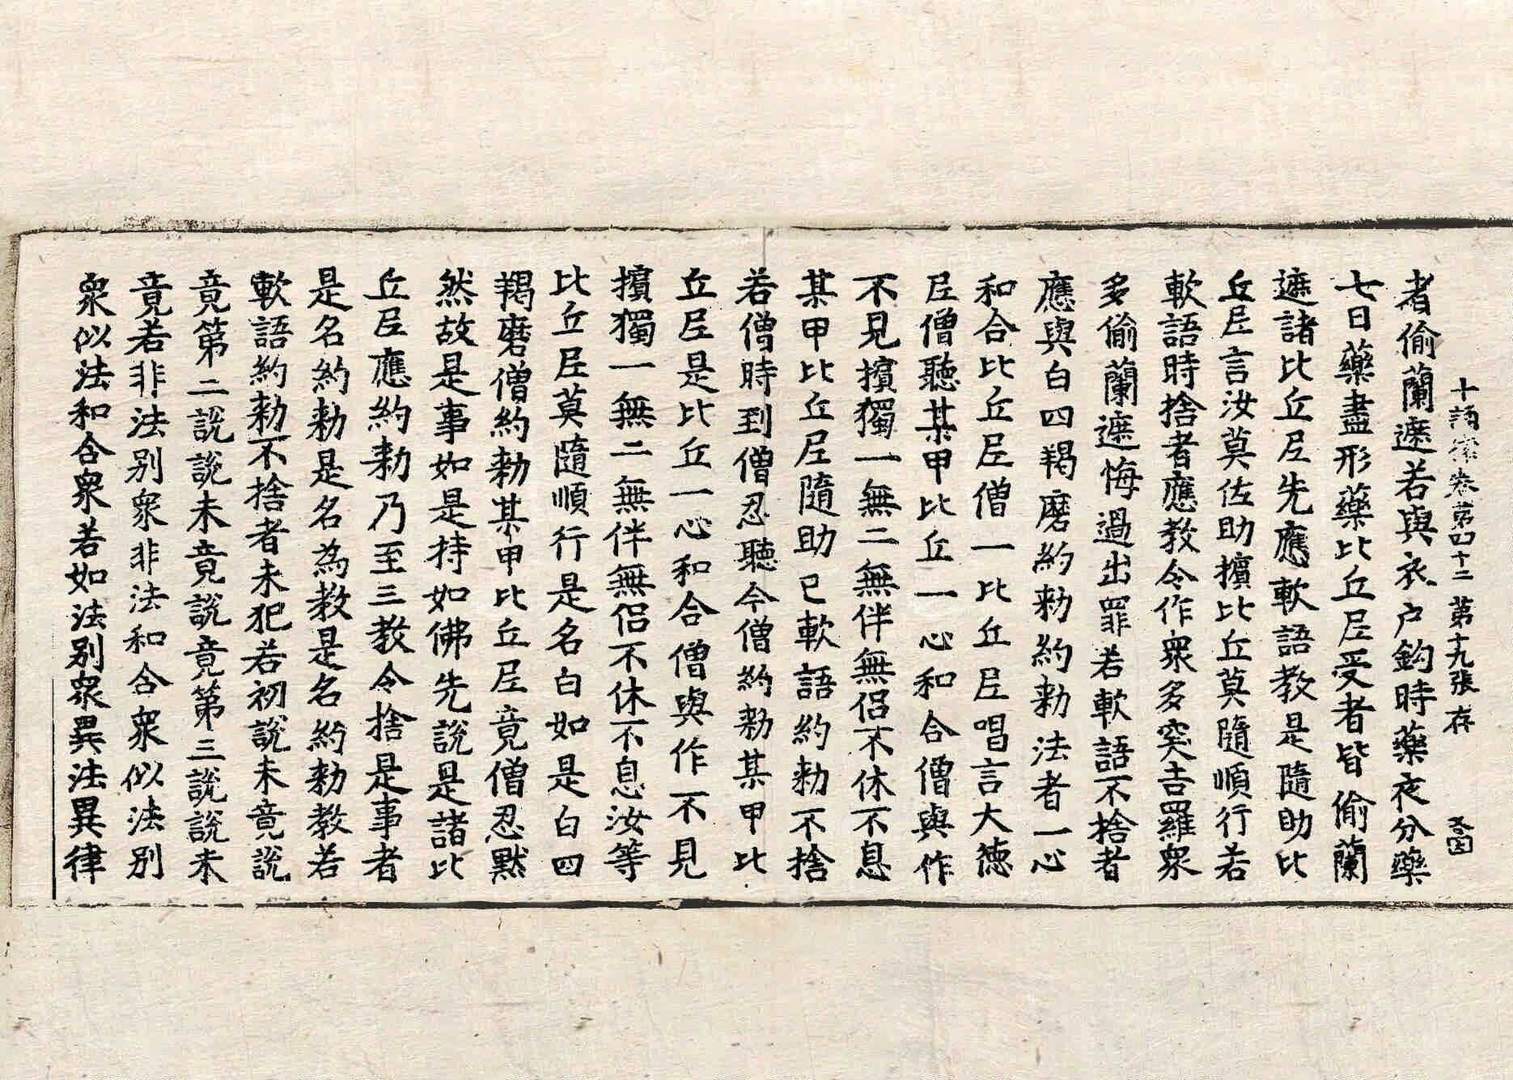 十誦律卷第四十二 第十九張 存
者偷蘭遮若與衣户鈎時藥夜分藥
七日藥盡形藥比丘尼受者皆偷蘭
遮諸比丘尼先應軟語教是隨助比
丘尼言汝莫佐助擯比丘莫隨順行若
軟語時捨者應教令作衆多突吉羅衆
多偷蘭遮悔過出罪若軟語不捨者
應與白四羯磨約勑約勑法者一心
和合比丘尼僧一比丘尼唱言大德
尼僧聽某甲比丘一心和合僧與作
不見擯獨一無二無伴無侶不休不息
某甲比丘尼隨助已軟語約勑不捨
若僧時到僧忍聽今僧約勑某甲比
丘尼是比丘一心和合僧與作不見
擯獨一無二無伴無侶不休不息汝等
比丘尼莫隨順行是名白如是白四
羯磨僧約勑某甲比丘尼竟僧忍默
然故是事如是持如佛先說是諸比
丘尼應約勑乃至三教令捨是事者
是名約勑是名為教是名約勑教若
軟語約勑不捨者未犯若初說未竟說
竟第二說說未竟說竟第三說說未
竟若非法別衆非法和合衆似法別
衆似法和合衆若如法別衆異法異律